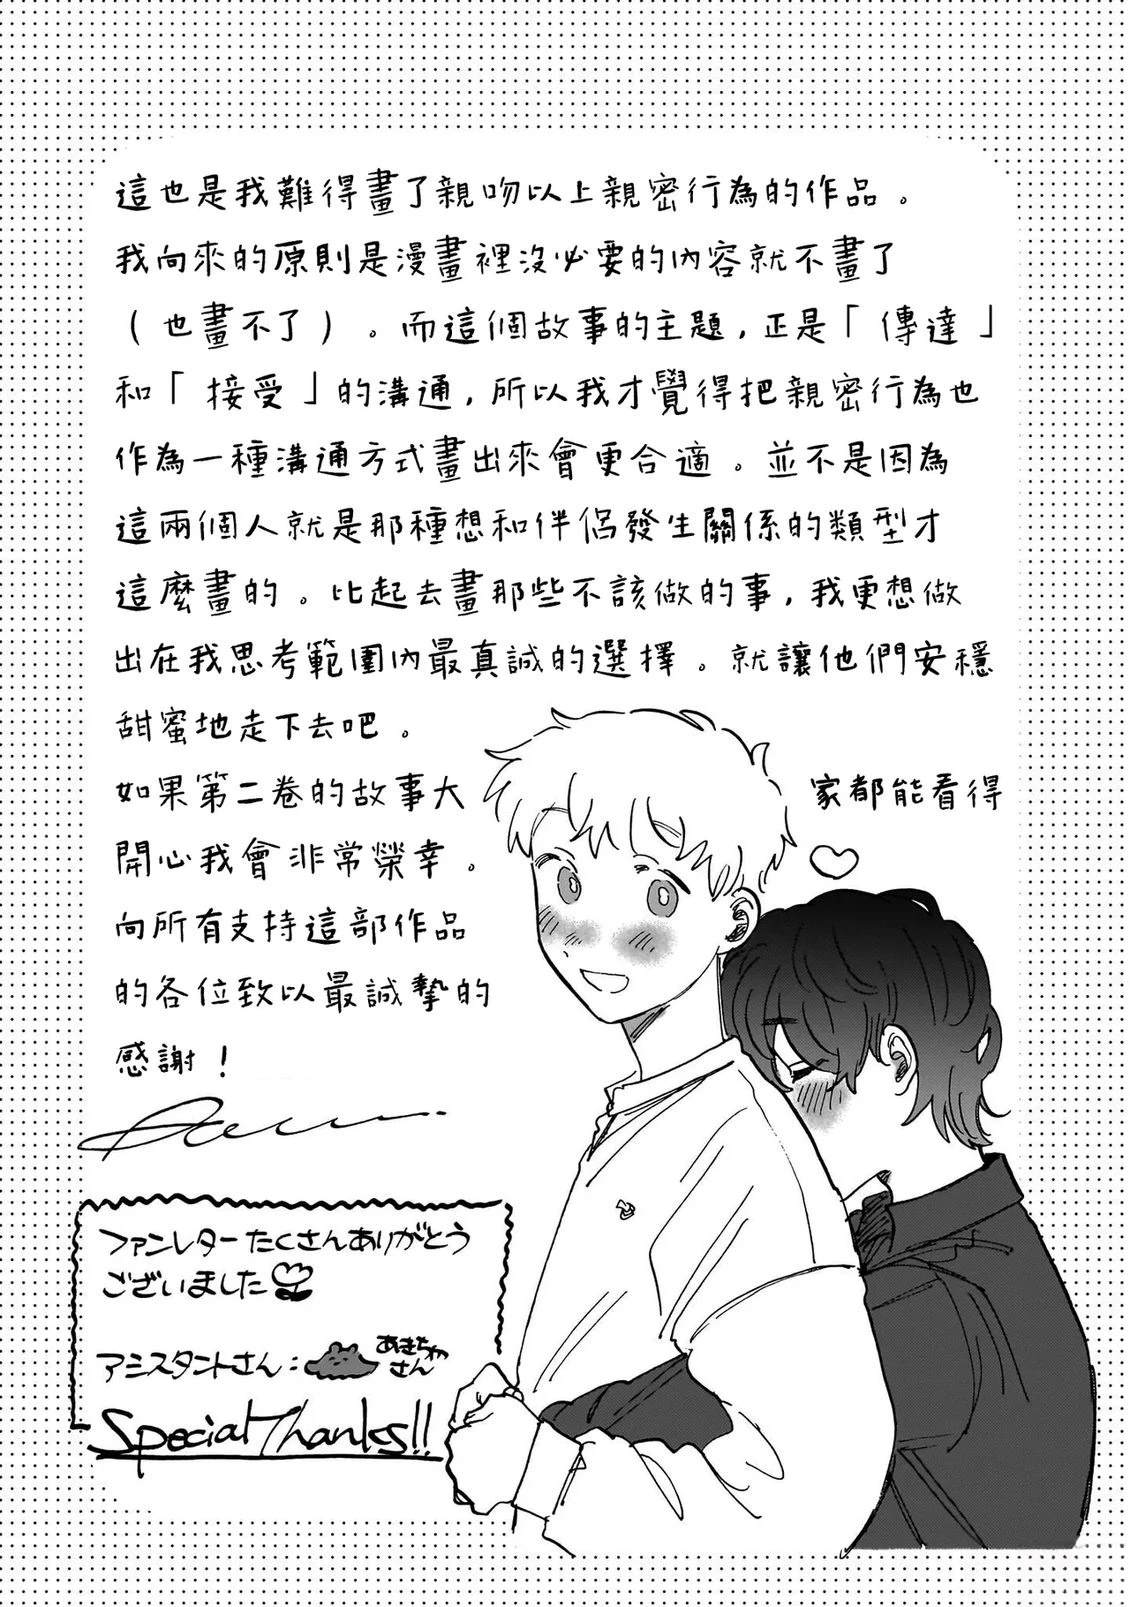 這也是我難得畫了親吻以上親密行為的作品。
我向來的原則是漫畫裡沒必要的內容就不畫了
（也畫不了）。而這個故事的主題，正是「傳達」
和「接受」的溝通，所以我才覺得把親密行為也
作為一種溝通方式畫出來會更合適。並不是因為
這兩個人就是那種想和伴侶發生關係的類型才
這麼畫的。比起去畫那些不該做的事，我更想做
出在我思考範圍內最真誠的選擇。就讓他們安穩
甜蜜地走下去吧。
如果第二卷的故事大家都能看得
開心我會非常榮幸。
向所有支持這部作品
的各位致以最誠摯的
感謝！
ファンレターたくさんありがとう
ございました
アシスタントさん：あきちゃさん
Special Thanks!!